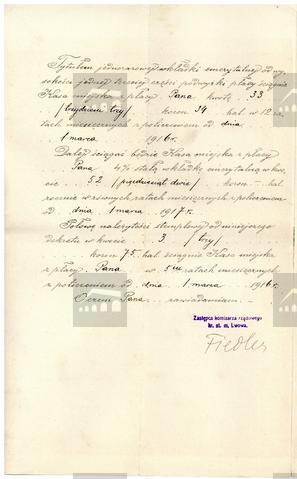 Tytułem jednorazowej wkładki emerytalnej od wy-
sokości jednej trzeciej części podwyżki płacy ściągnie
Kasa miejska z płacy Pana kwotę 33
/trzydzieści trzy/ koron 34 hal. w 12 ra-
tach miesięcznych z potrąceniem od dnia
1 marca 1916 r.
Dalej ściągać będzie Kasa miejska z płacy
Pana 4% stałą wkładkę emerytalną w kwo-
cie 52 /pięćdziesiąt dwie/ koron — hal.
rocznie w równych ratach miesięcznych z potrąceniem
od dnia 1 marca 1917 r.
Połowę należytości stemplowej od niniejszego
dekretu w kwocie 3 /trzy/
koron 75 hal. ściągnie Kasa miejska
z płacy Pana w 5 ciu ratach miesięcznych
z potrąceniem od dnia 1 marca 1916 r.
O czem Pana zawiadamiam.
Zastępca komisarza rządowego
kr. st. m. Lwowa.
Fiedler